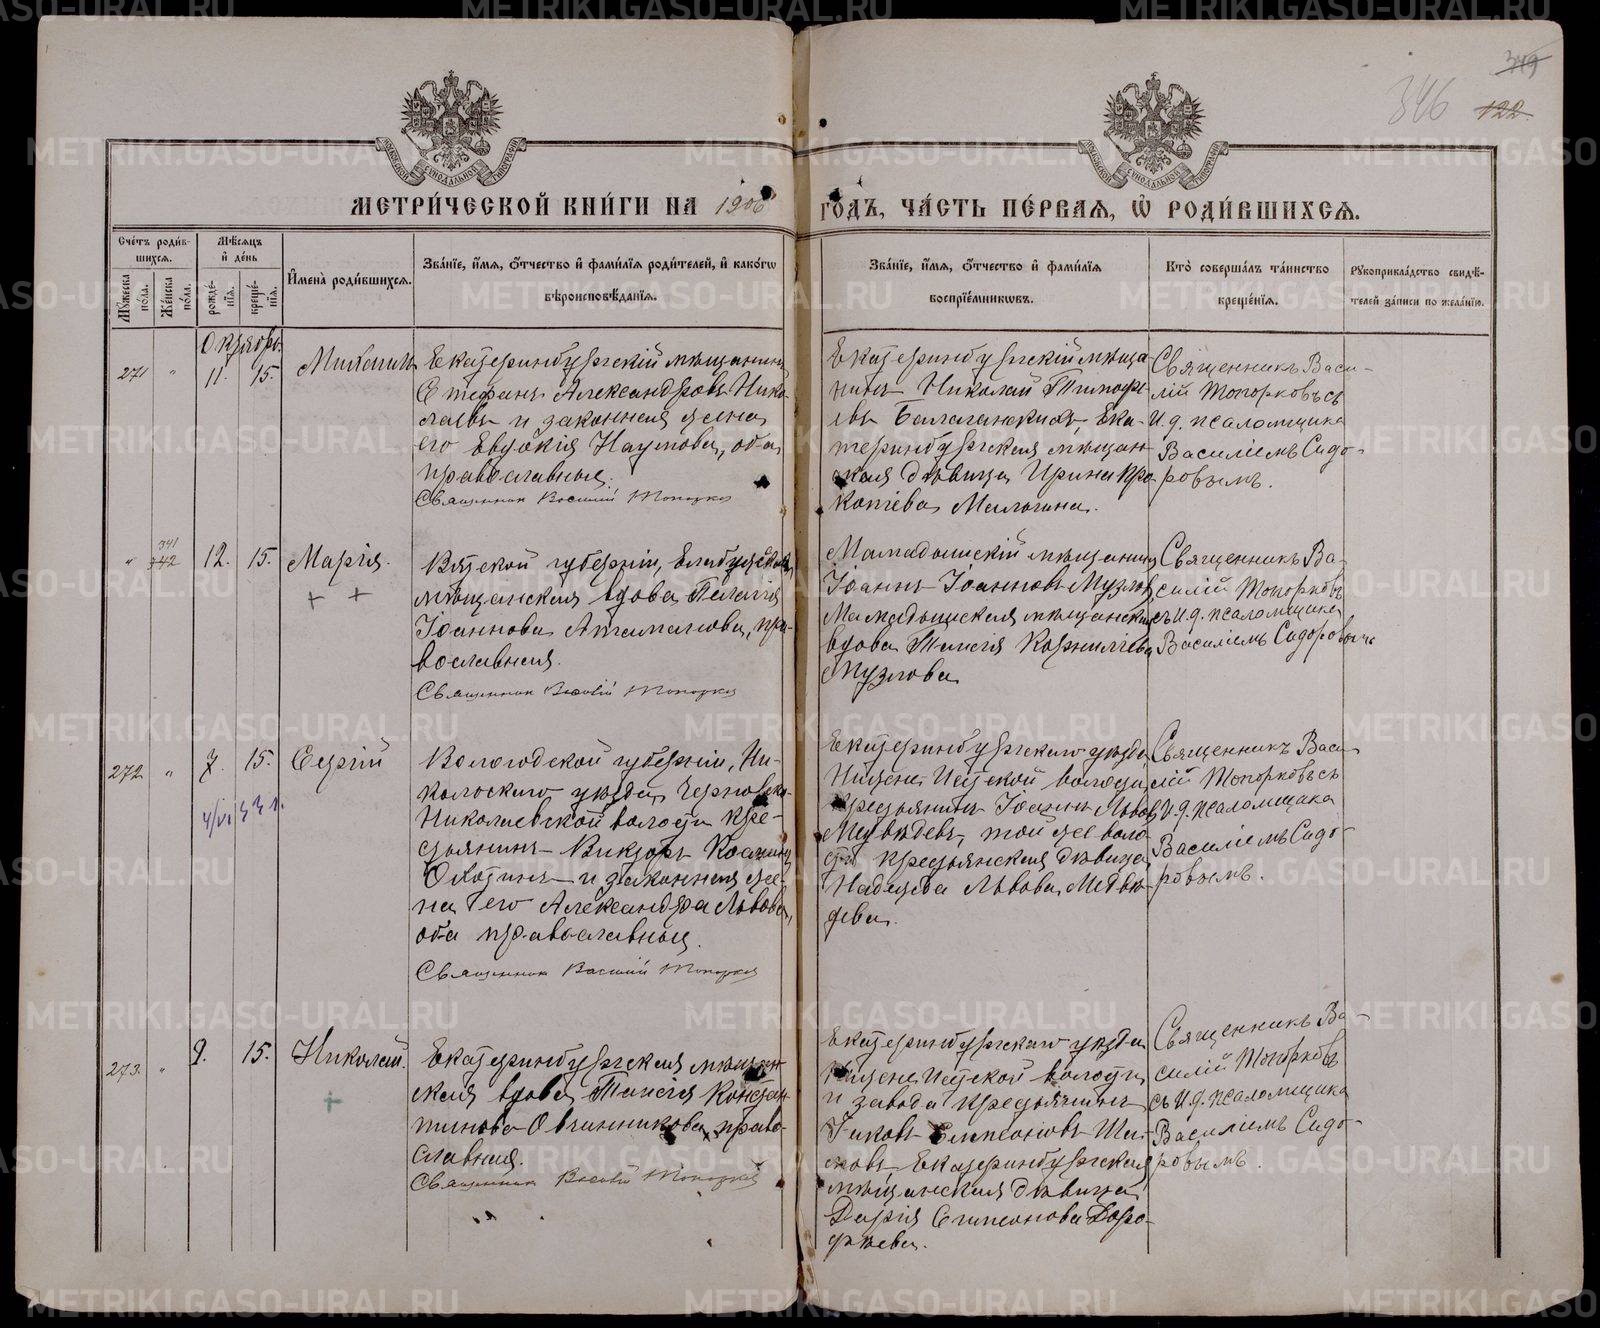 METRIKI.GASO-URAL.RU
349
346 122.
МЕТРИ́ЧЕСКОЙ КНИ́ГИ НА 1906
ГО́ДЪ, ЧА́СТЬ ПЕ́РВАѦ, Ѽ РОДИ́ВШИХСѦ.
Сче́тъ роди́в-
шихсѧ.
Мѣ́сѧцъ
и҆ де́нь
Мꙋ́жеска по́ла.
Же́нска по́ла.
рожде́-
нїѧ.
креще́-
нїѧ.
И҆мена̀ роди́вшихсѧ.
Зва́нїе, и҆́мѧ, ѻ҆́тчество и҆ фами́лїѧ роди́телей, и҆ како́гѡ
вѣроисповѣ́данїѧ.
Зва́нїе, и҆́мѧ, ѻ҆́тчество и҆ фами́лїѧ
воспрїе́мникѡвъ.
Кто̀ соверша́лъ та́инство
креще́нїѧ.
Рꙋкоприкла́дство свидѣ́-
телей за́писи по жела́нїю.
Октябрь
271 " 11. 15. Михаилъ
Екатеринбургскій мѣщанинъ
Стефанъ Александровъ Нико-
лаевъ и законная жена
его Евдокія Наумова, оба
православные.
Священник Василій Топорков
Екатеринбургскій мѣща-
нинъ Николай Тимофе-
евъ Балаганскихъ, Ека-
теринбургская мѣщан-
ская дѣвица Ирина Про-
копіева Малыгина.
Священникъ Васи-
лій Топорковъ съ
И. д. псаломщика
Василіемъ Сидо-
ровымъ.
" 341 342 12. 15. Марія.
Вятской губерніи, Елабужская
мѣщанская вдова Пелагія
Іоаннова Атаманова, пра-
вославная.
Священник Василій Топорков
Мамадышскій мѣщанинъ
Іоаннъ Іоанновъ Музловъ
Мамадышская мѣщанская
вдова Таисія Корниліева
Музлова
Священникъ Ва-
силій Топорковъ
съ И. д. псаломщика
Василіемъ Сидоровымъ
272 " 7. 15. Сергій
4/VI 33 г.
Вологодской губерніи, Ни-
кольскаго уѣзда, Черновско-
Николаевской волости кре-
стьянинъ Викторъ Косминъ
Охотинъ и законная же-
на его Александра Львова,
оба православные.
Священник Василій Топорков
Екатеринбургскаго уѣзда
Нижне-Исетской волости
крестьянинъ Іоаннъ Львовъ
Медвѣдевъ, той же воло-
сти крестьянская дѣвица
Надежда Львова Медвѣ-
дева.
Священникъ Васи-
лій Топорковъ съ
И. д. псаломщика
Василіемъ Сидо-
ровымъ.
273. " 9. 15. Николай.
Екатеринбургская мѣщан-
ская вдова Таисія Констан-
тинова Овчинникова, право-
славная.
Священник Василій Топорков
Екатеринбургскаго уѣзда
Нижне-Исетской волости
и завода крестьянинъ
Іаковъ Симеоновъ Ши-
ховъ Екатеринбургская
мѣщанская дѣвица
Дарія Симеонова Доро-
фѣева.
Священникъ Ва-
силій Топорковъ
съ И. д. псаломщика
Василіемъ Сидо-
ровымъ.